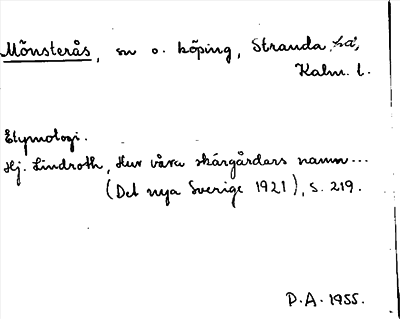 Mönsterås, sn o. köping, Stranda hd,
Kalm. l.
Etymologi.
Hj. Lindroth, Hur våra skärgårdars namn...
(Det nya Sverige 1921), s. 219.
P.A. 1955.